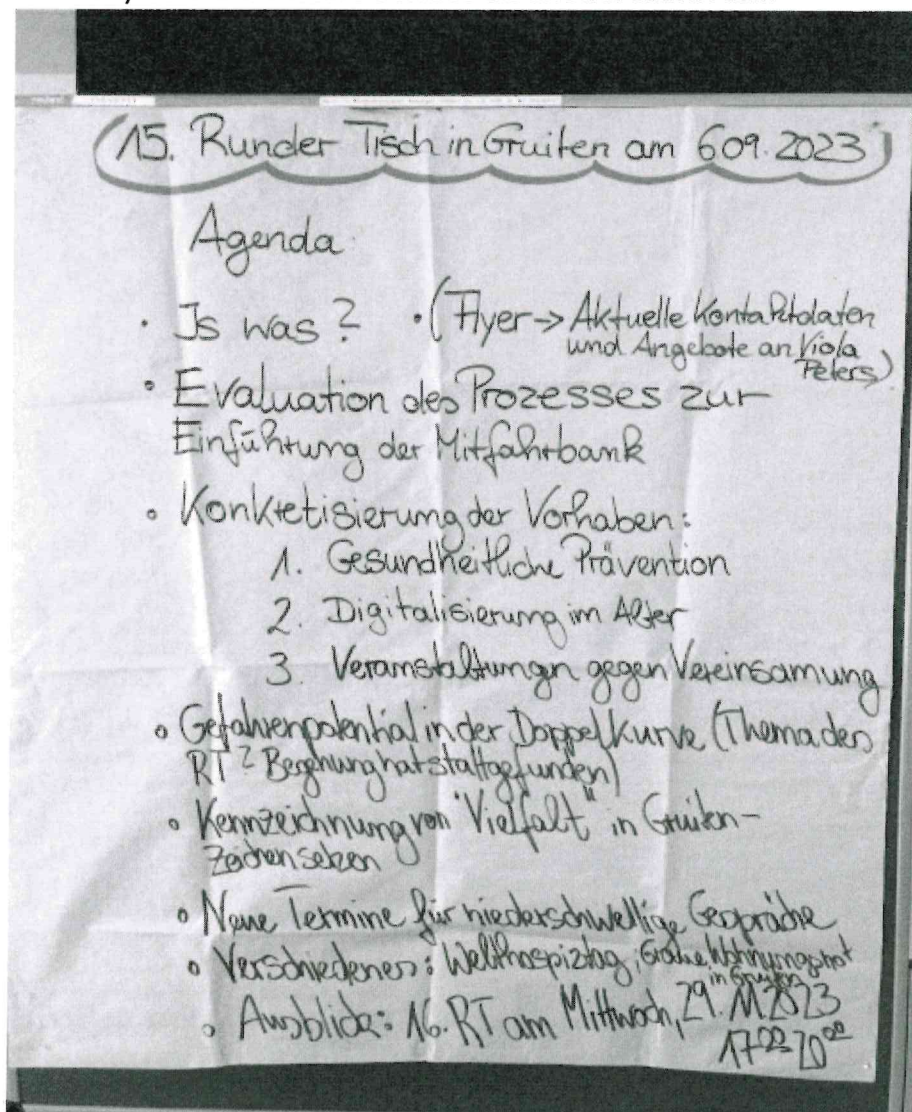 15. Runder Tisch in Gruiten am 6.09.2023
Agenda
• Is was? • (Flyer → Aktuelle Kontaktdaten
und Angebote an Viola
Peters)
• Evaluation des Prozesses zur
Einführung der Mitfahrbank
• Konkretisierung der Vorhaben:
1. Gesundheitliche Prävention
2. Digitalisierung im Alter
3. Veranstaltungen gegen Vereinsamung
• Gefahrenpotential in der Doppelkurve (Thema des
RT? Begehung hat stattgefunden)
• Kennzeichnung von "Vielfalt" in Gruiten -
Zeichen setzen
• Neue Termine für niederschwellige Gespräche
• Verschiedenes: Welthospiztag, Wohnungsnot
in Gruiten
• Ausblick: 16. RT am Mittwoch, 29.11.2023
17⁰⁰ 20⁰⁰